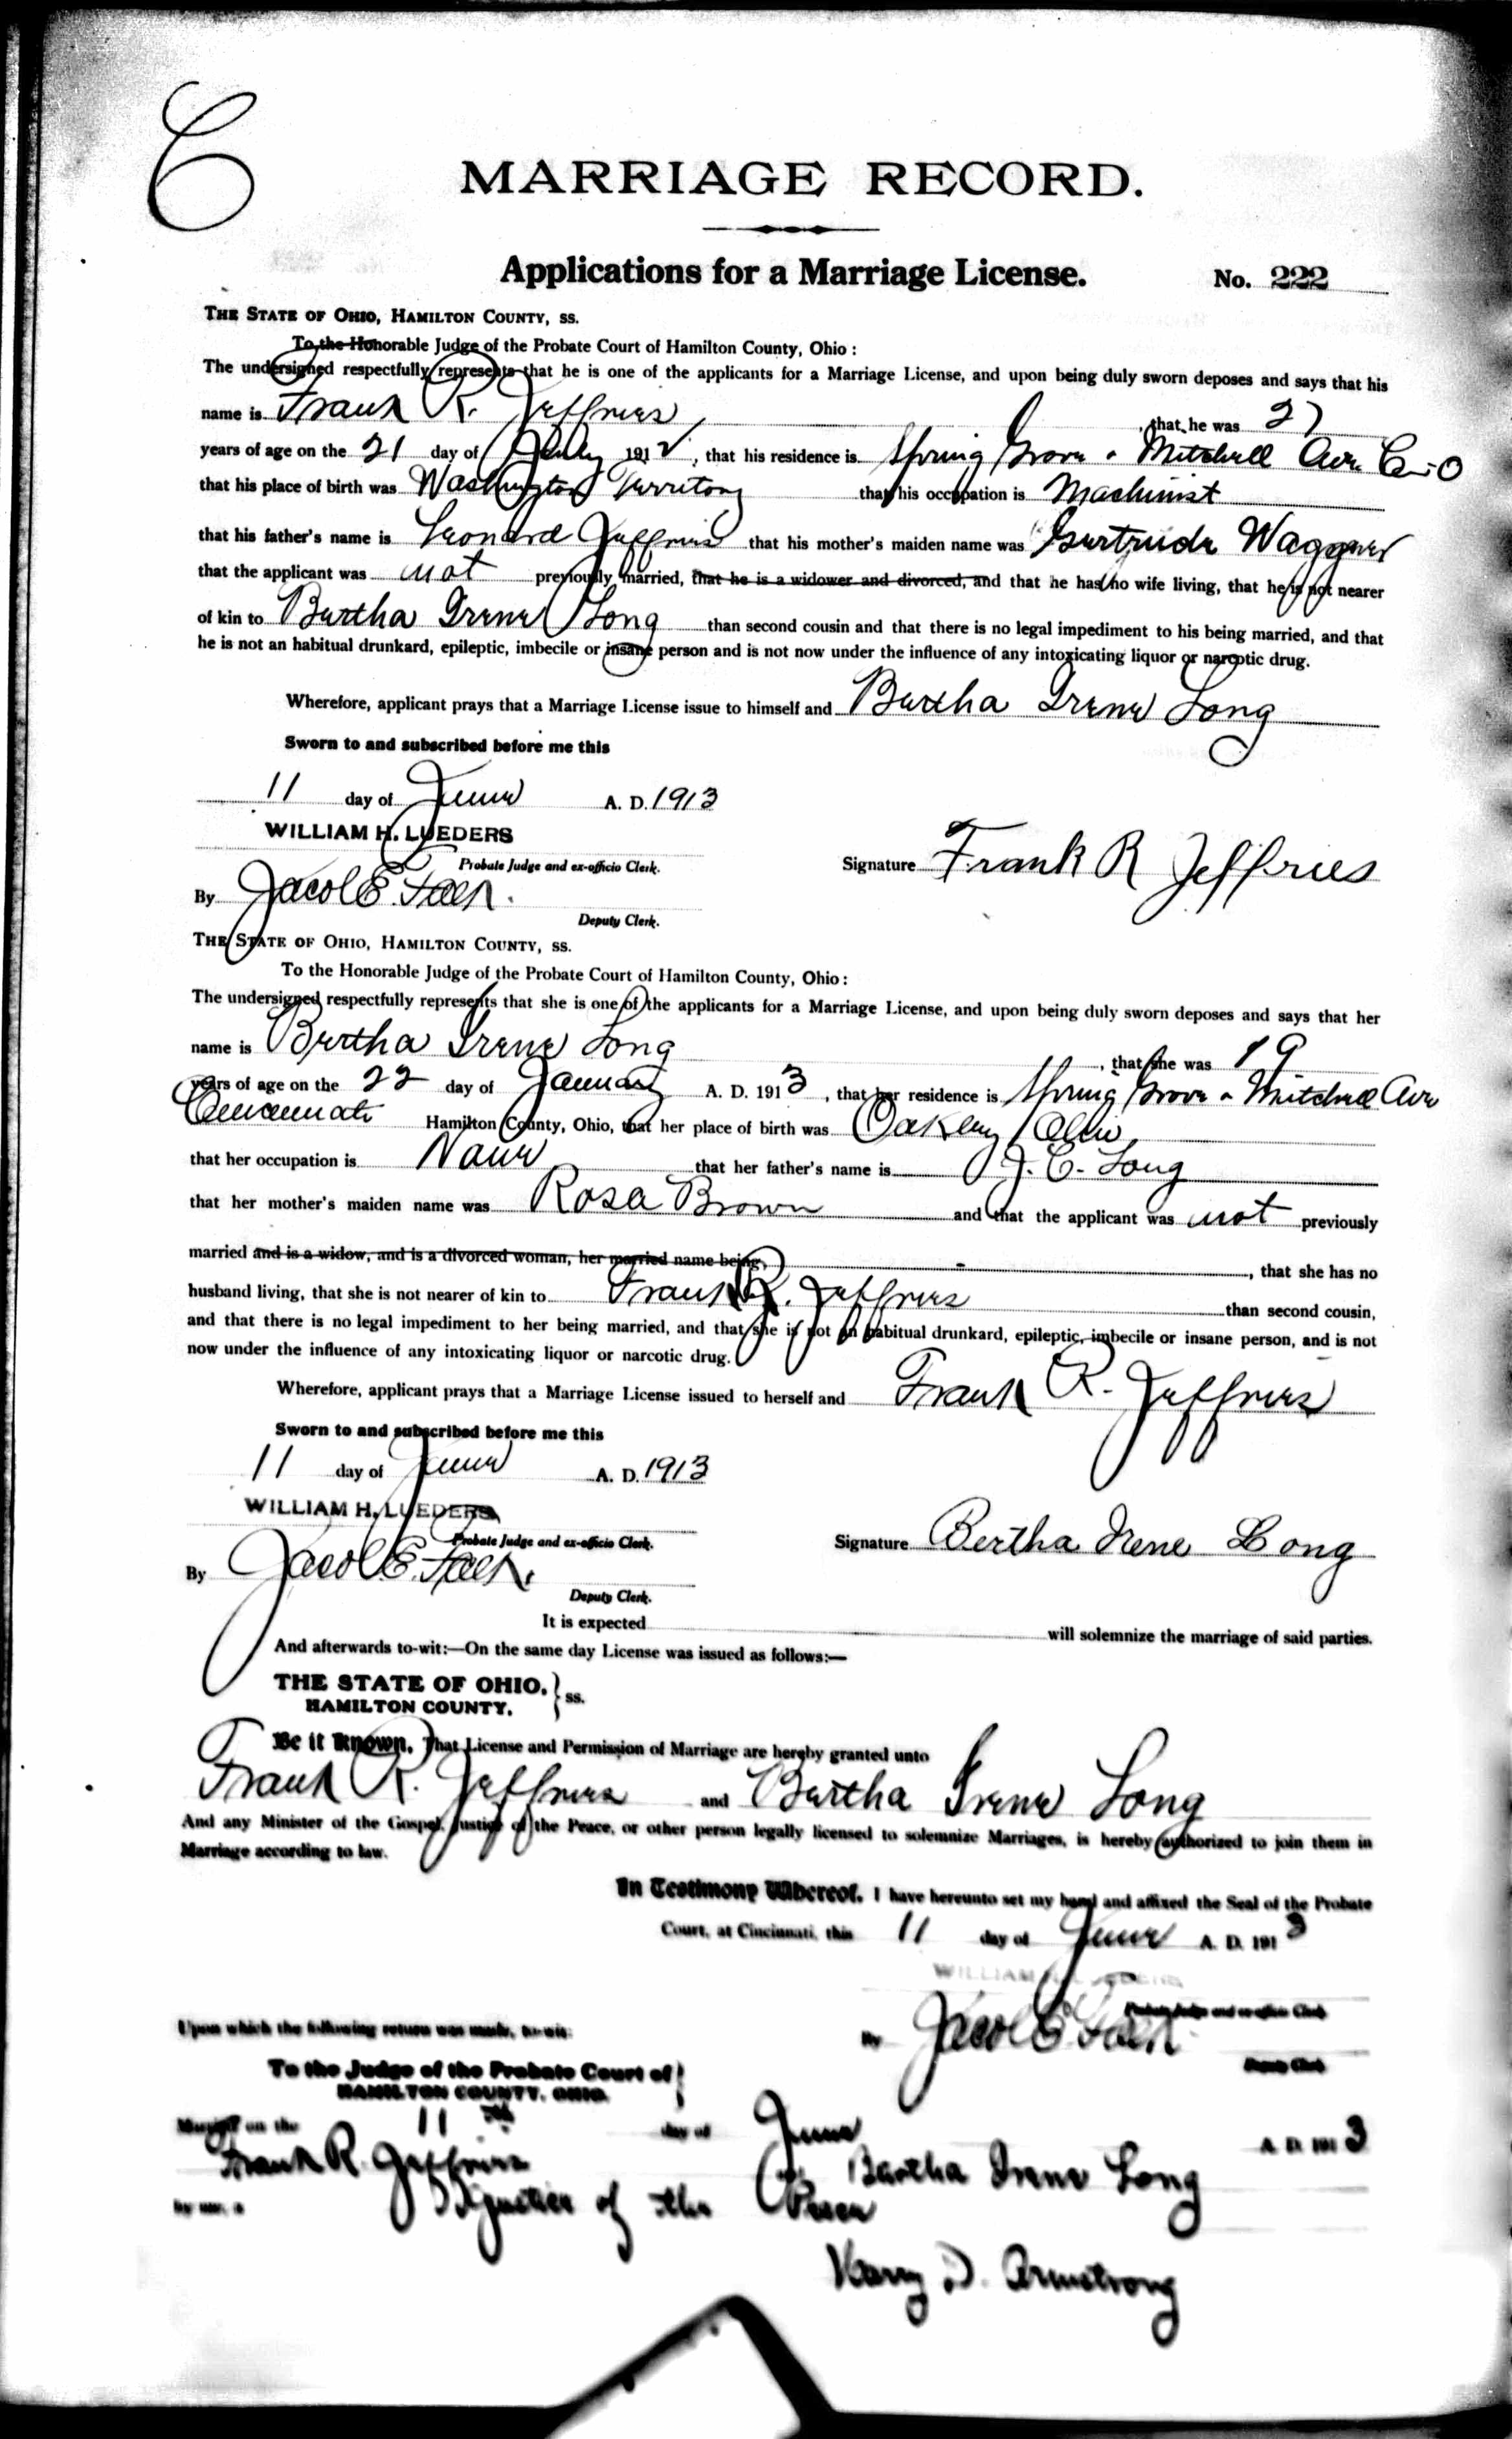 C
MARRIAGE RECORD.
Applications for a Marriage License. No. 222
THE STATE OF OHIO, HAMILTON COUNTY, SS.
To the Honorable Judge of the Probate Court of Hamilton County, Ohio :
The undersigned respectfully represents that he is one of the applicants for a Marriage License, and upon being duly sworn deposes and says that his
name is Frank R. Jeffries , that he was 27
years of age on the 21 day of July 1912 , that his residence is Spring Grove & Mitchell Ave Cin O
that his place of birth was Washington Territory that his occupation is Machinist
that his father's name is Leonard Jeffries that his mother's maiden name was Gertrude Waggoner
that the applicant was not previously married, that he is a widower and divorced, and that he has no wife living, that he is not nearer
of kin to Bertha Irene Long than second cousin and that there is no legal impediment to his being married, and that
he is not an habitual drunkard, epileptic, imbecile or insane person and is not now under the influence of any intoxicating liquor or narcotic drug.
Wherefore, applicant prays that a Marriage License issue to himself and Bertha Irene Long
Sworn to and subscribed before me this
11 day of June A. D. 1913
WILLIAM H. LUEDERS
Probate Judge and ex-officio Clerk.
Signature Frank R Jeffries
By Jacob E.
Deputy Clerk.
THE STATE OF OHIO, HAMILTON COUNTY, SS.
To the Honorable Judge of the Probate Court of Hamilton County, Ohio :
The undersigned respectfully represents that she is one of the applicants for a Marriage License, and upon being duly sworn deposes and says that her
name is Bertha Irene Long , that she was 19
years of age on the 22 day of January A. D. 1913 , that her residence is Spring Grove & Mitchell Ave
Cincinnati Hamilton County, Ohio, that her place of birth was Oakley Ohio
that her occupation is None that her father's name is J. E. Long
that her mother's maiden name was Rosa Brown and that the applicant was not previously
married and is a widow, and is a divorced woman, her married name being, , that she has no
husband living, that she is not nearer of kin to Frank R. Jeffries than second cousin,
and that there is no legal impediment to her being married, and that she is not an habitual drunkard, epileptic, imbecile or insane person, and is not
now under the influence of any intoxicating liquor or narcotic drug.
Wherefore, applicant prays that a Marriage License issued to herself and Frank R. Jeffries
Sworn to and subscribed before me this
11 day of June A. D. 1913
WILLIAM H. LUEDERS
Probate Judge and ex-officio Clerk.
Signature Bertha Irene Long
By Jacob E.
Deputy Clerk.
It is expected will solemnize the marriage of said parties.
And afterwards to-wit:—On the same day License was issued as follows:—
THE STATE OF OHIO, } ss.
HAMILTON COUNTY.
Be it Known, That License and Permission of Marriage are hereby granted unto
Frank R. Jeffries and Bertha Irene Long
And any Minister of the Gospel, Justice of the Peace, or other person legally licensed to solemnize Marriages, is hereby authorized to join them in
Marriage according to law.
In Testimony Whereof, I have hereunto set my hand and affixed the Seal of the Probate
Court, at Cincinnati, this 11 day of June A. D. 1913
WILLIAM H. LUEDERS
Probate Judge and ex-officio Clerk
Upon which the following return was made, to-wit:
By Jacob E.
Deputy Clerk
To the Judge of the Probate Court of }
HAMILTON COUNTY, OHIO.
Married on the 11th day of June A. D. 1913
Frank R. Jeffries Bertha Irene Long
by me, a Justice of the Peace
Harry D. Armstrong